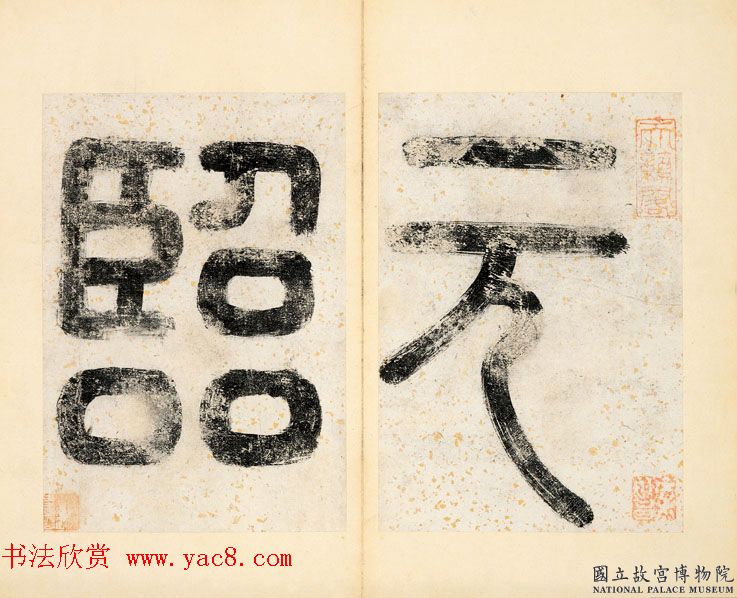 元
臨
天籟閣
书法欣赏 www.yac8.com
國立故宮博物院
NATIONAL PALACE MUSEUM